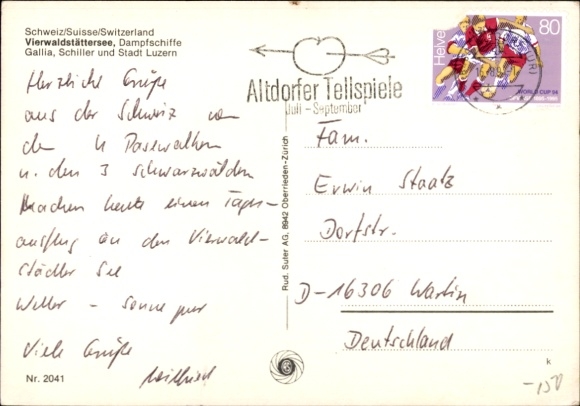 Schweiz/Suisse/Switzerland
Vierwaldstättersee, Dampfschiffe
Gallia, Schiller und Stadt Luzern
Herzliche Grüße
aus der Schweiz von
den 4 Pasewalkern
u. den 3 Schwarzwäldern
Machen heute einen Tages-
ausflug an den Vierwald-
städter See
Wetter – Sonne pur
Viele Grüße
Wilfried
Nr. 2041
Rud. Suter AG, 8942 Oberrieden-Zürich
Altdorfer Tellspiele
Juli - September
Helvetia
80
WORLD CUP 94
Fam.
Erwin Staatz
Dorfstr.
D-16306 Wartin
Deutschland
k
-150